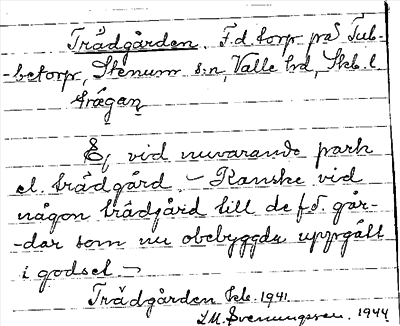 Trädgården. F.d. torp på Tub-
-betorp, Stenum s:n, Valle hd, Skb. l.
trägan
Ej vid nuvarande park
el. trädgård. – Kanske vid
någon trädgård till de f.d. går-
-dar som nu obebyggda uppgått
i godset. –
Trädgården Eck. 1941.
I.M. Svenungsson. 1944